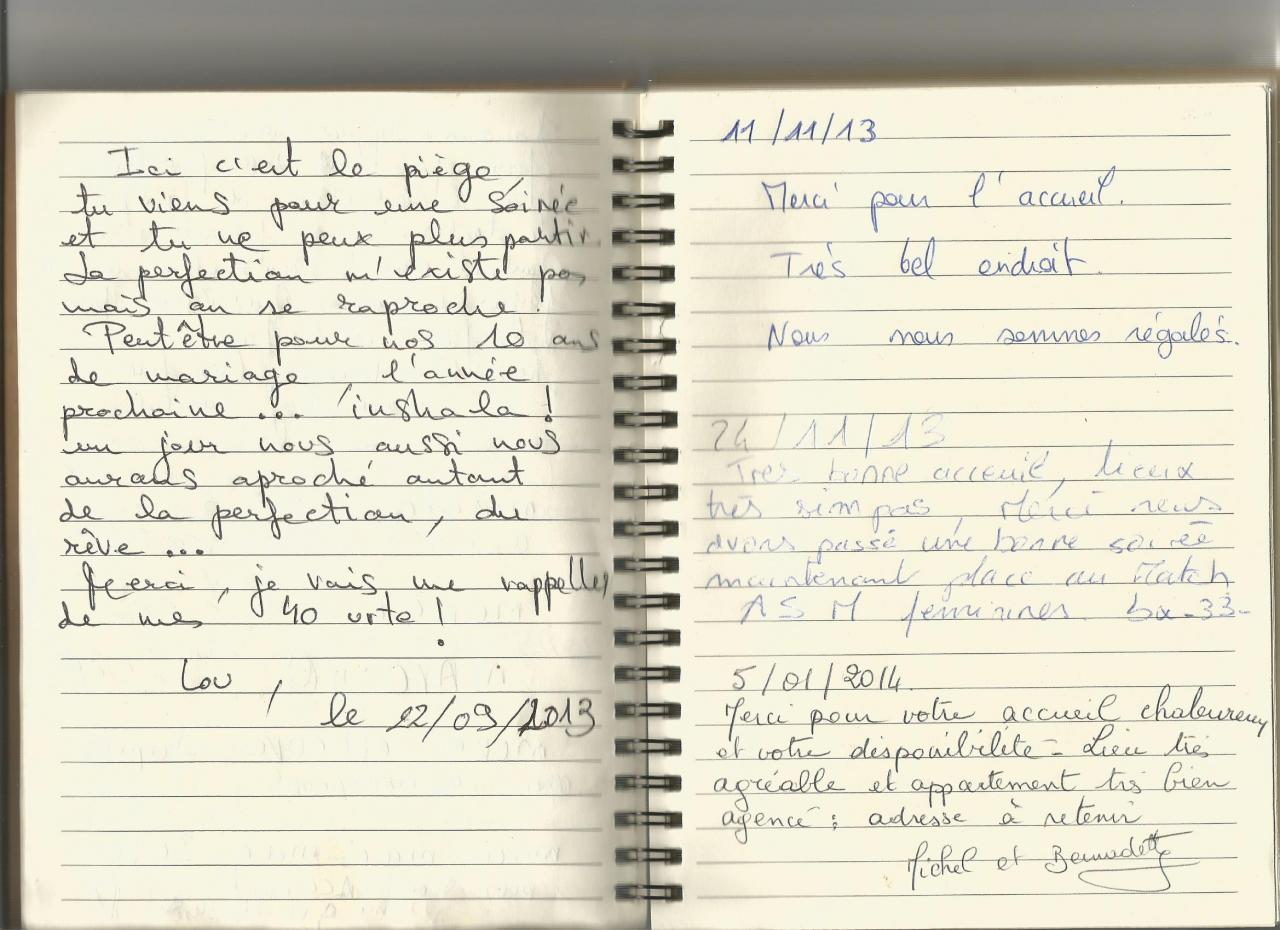 Ici c'est le piège,
tu viens pour une soirée
et tu ne peux plus partir.
La perfection n'existe pas
mais on se raproche !
Peut être pour nos 10 ans
de mariage, l'année
prochaine ... inshala !
un jour nous aussi nous
aurons aproché autant
de la perfection, du
rêve ...
Merci, je vais me rappeller
de mes 40 !
Lou,
le 22/09/2013
11/11/13
Merci pour l'accueil.
Très bel endroit.
Nous nous sommes régalés.
24/11/13
Tres bonne acceuil, lieux
très simpas, Merci nous
avons passé une bonne soirée
maintenant place au Match
ASM feminines bx-33-
5/01/2014
Merci pour votre accueil chaleureux
et votre disponibilité - Lieu très
agréable et appartement très bien
agencé ; adresse à retenir
Michel et Bernadette